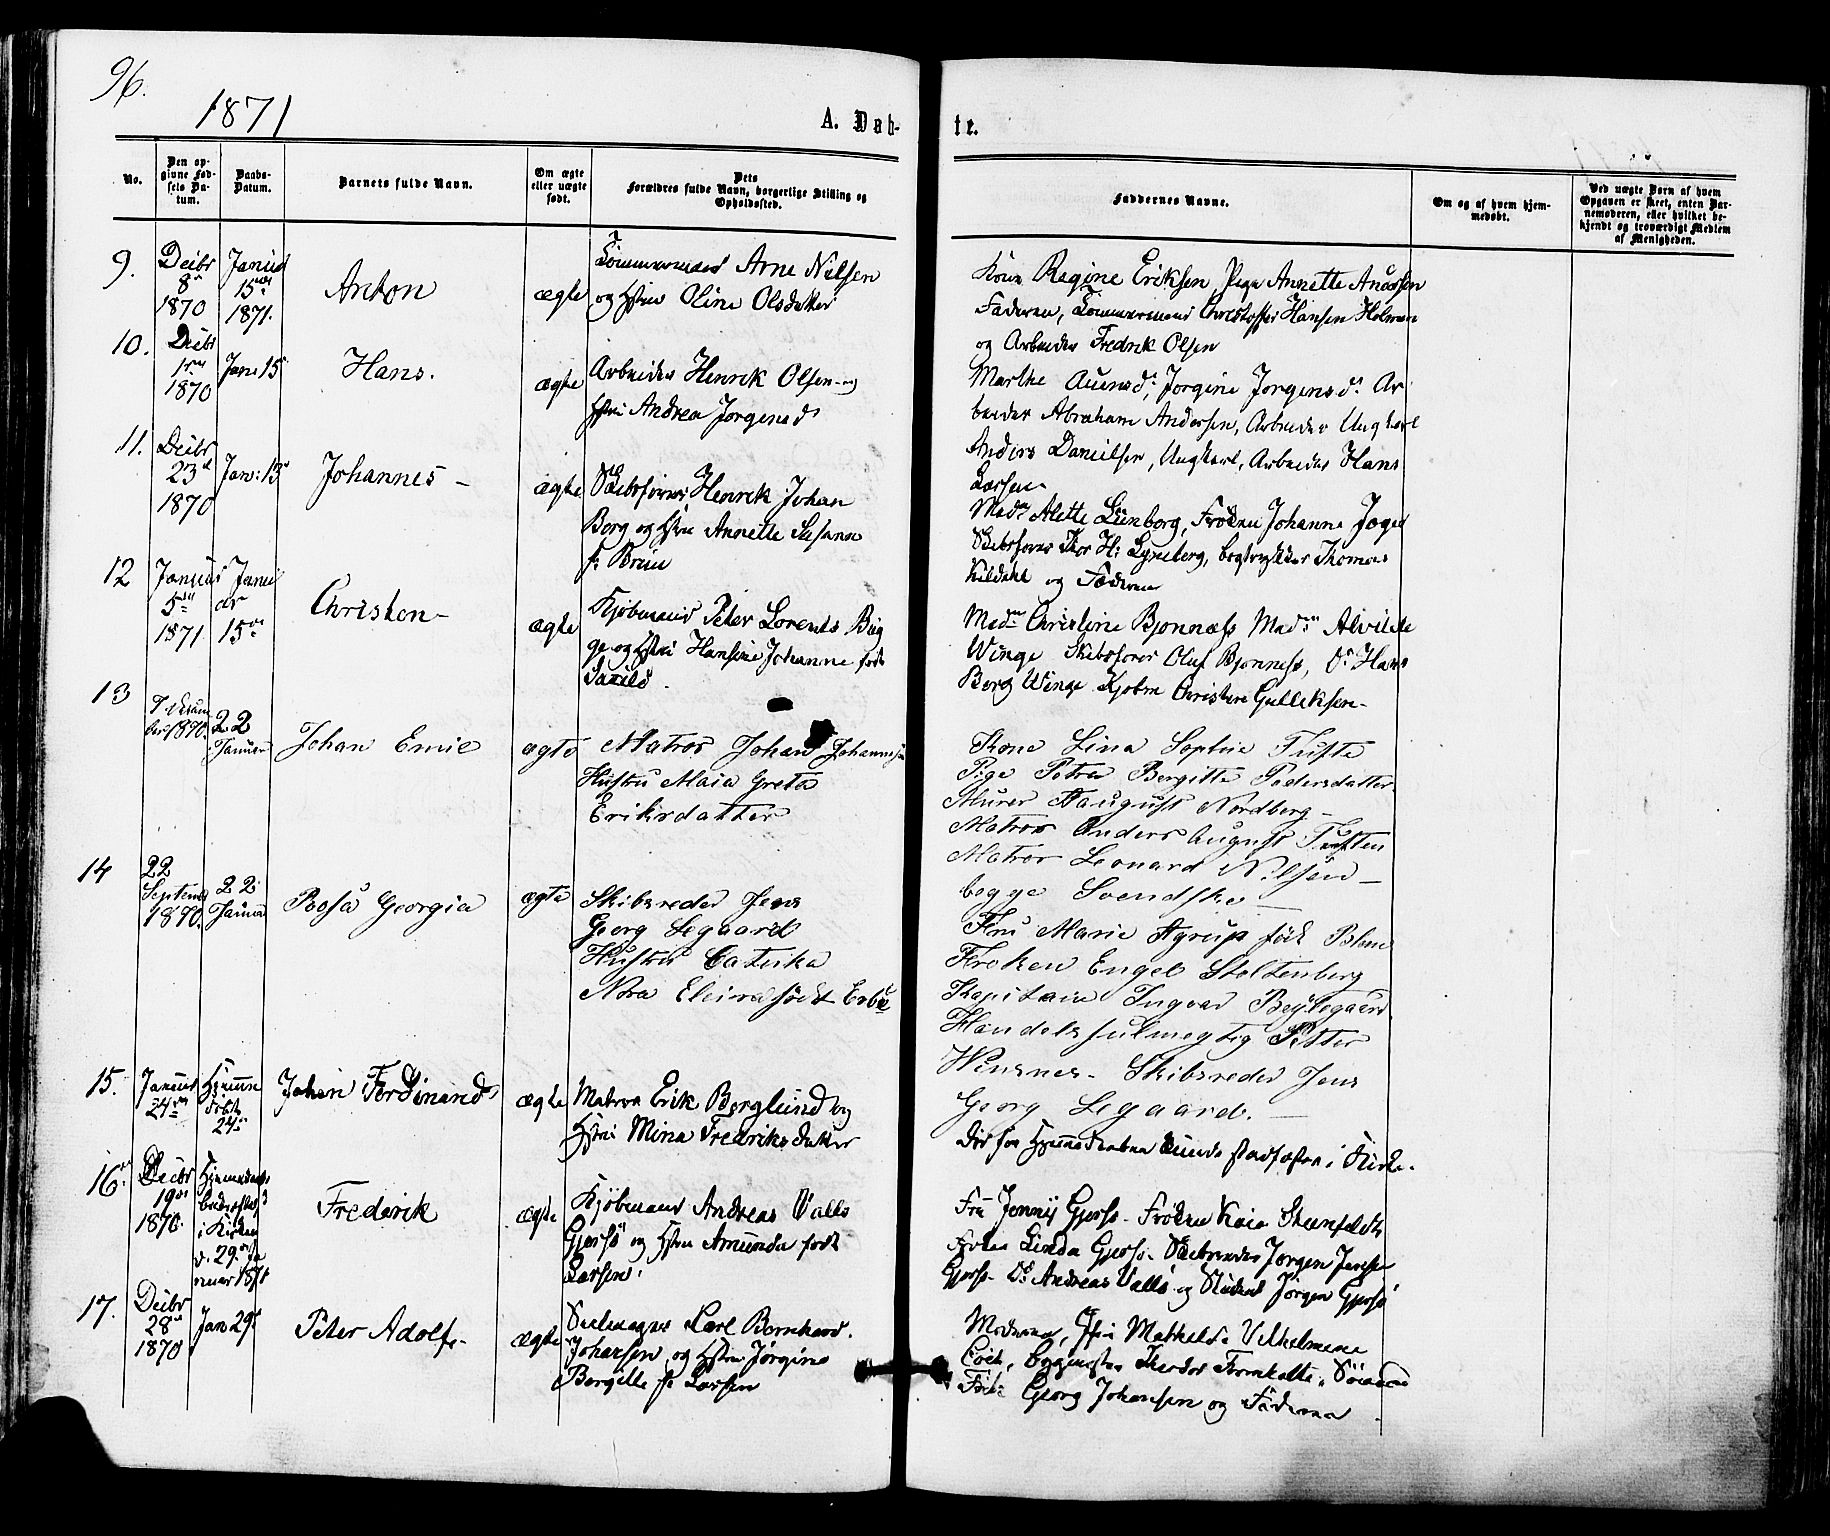 96.
1871
A. Døb-
te.
No.
Den op-
givne Fød-
sels Da-
tum.
Daabs-
Datum.
Barnets fulde Navn.
Om ægte
eller uægte
født.
Dets
Forældres fulde Navn, borgerlige Stilling og
Opholdssted.
Faddernes Navne.
Om og af hvem hjem-
medøbt.
Ved uægte Børn af hvem
Opgaven er skeet, enten Bar-
nemoderen, eller hvilket be-
kjendt og troværdigt Medlem
af Menigheden.
9.
Decbr
8
1870
Januar
15
1871.
Anton
ægte
Tømmermand Arne Nilsen
og Hstru Oline Olsdatter
Kone Regine Eriksen, Pige Annette
Faderen, Tømmermand Christoffer Hansen
og Arbeider Fredrik Olsen
10.
Decbr
1
1870
Jan: 15
Hans.
ægte
Arbeider Henrik Olsen og
Hstru Andrea Jørgensd
Marthe Jørgine Jørgensd Ar
beider Abraham Andersen, Arbeider Ungkarl
Anders Danielsen, Ungkarl, Arbeider Hans
Larsen
11.
Decbr
23
1870
Jan: 15
Johannes -
ægte
Skibsfører Henrik Johan
Borg og Hstru Annette Susanne
f: Bruu
Mad Alette Lünborg, Frøken Johanne
Skibsfører Thor H: Lyneborg, bogtrykker Thomas
Kildahl og Faderen
12
Januar
5
1871
Janu
ar
15
Christen -
ægte
Kjøbmand Peter Lorents Bug
ge og Hstru Hansine Johanne født
Mad Christine Bjønnæss Mad Alvilde
Winge Skibsfører Oluf Bjønness, D Hans
Berg Winge Kjøbm Christen Gulliksen -
13
1870.
22
Januar
Johan Emil
ægte
Matros Johan Johannsen
Hustru Maia Greta
Eriksdatter
Kone Lina Sophie
Pige Petra Bergitte Pedersdatter
Murer August Nordberg -
Matros Anders August
Matros Leonard Nilsen -
begge Svendske -
14
22
Septemb
1870.
22
Januar
Rosa Georgia
ægte
Skibsreder Jens
Georg Legaard
Hustru Catinka
Nora Elvira født Erbu
Fru Marie Agrup født
Frøken Engel Stoltenberg
Kapitain Ingvar Beylegaard
Handelsfulmegtig Petter
Wensnes - Skibsreder Jens
Georg Legaard. -
15.
Januar
24
Hjemme
døbt
24
Johan Ferdinand
ægte
Matros Erik Berglund og
Hstru Mina Fredriksdatter
Døde før Hjemmedaaben kunde stadfæstes i Kirke.
16.
Decbr
19
1870.
Hjemmedøbt
bekræftet
i Kirken
d. 29 Ja
nuar 1871
Frederik
ægte
Kjøbmand Andreas Vallø
Gjersø og Hstru Amunda født
Larsen.
Fru Jenny Gjersø - Frøken Kaia Steenfeldt
Frøken Linda Gjersø - Skibsreder Jørgen Jensen
Gjersø - D Andreas Vallø og Student Jørgen Gjersø
17.
Decbr
28
1870
Jan 29
Peter Adolf -
ægte
Seilmager Carl Bernhard
Johansen og Hstru Jørgine
Bergitte f: Larsen
Moderen, Mathilde Vilhelmene
Theodor Sømand
Georg Johansen og Faderen